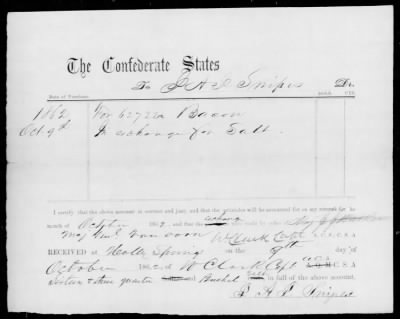 The Confederate States
To J A J Snipes Dr.
Date of Purchase. DOLLS. CTS.
1862 For 627 lbs Bacon
Oct 9th In exchange for Salt.
I certify that the above account is correct and just, and that the articles will be accounted for on my return for the
month of October 1862, exchange made by order
Maj Genl Van Dorn W Clark Capt A.C.S.C.S.A
RECEIVED at Holly Springs on the 9th day of
October 1862, of W Clark Capt A.C.S. C S A
Sixteen & three quarter Bushel Salt in full of the above account.
J A J Snipes